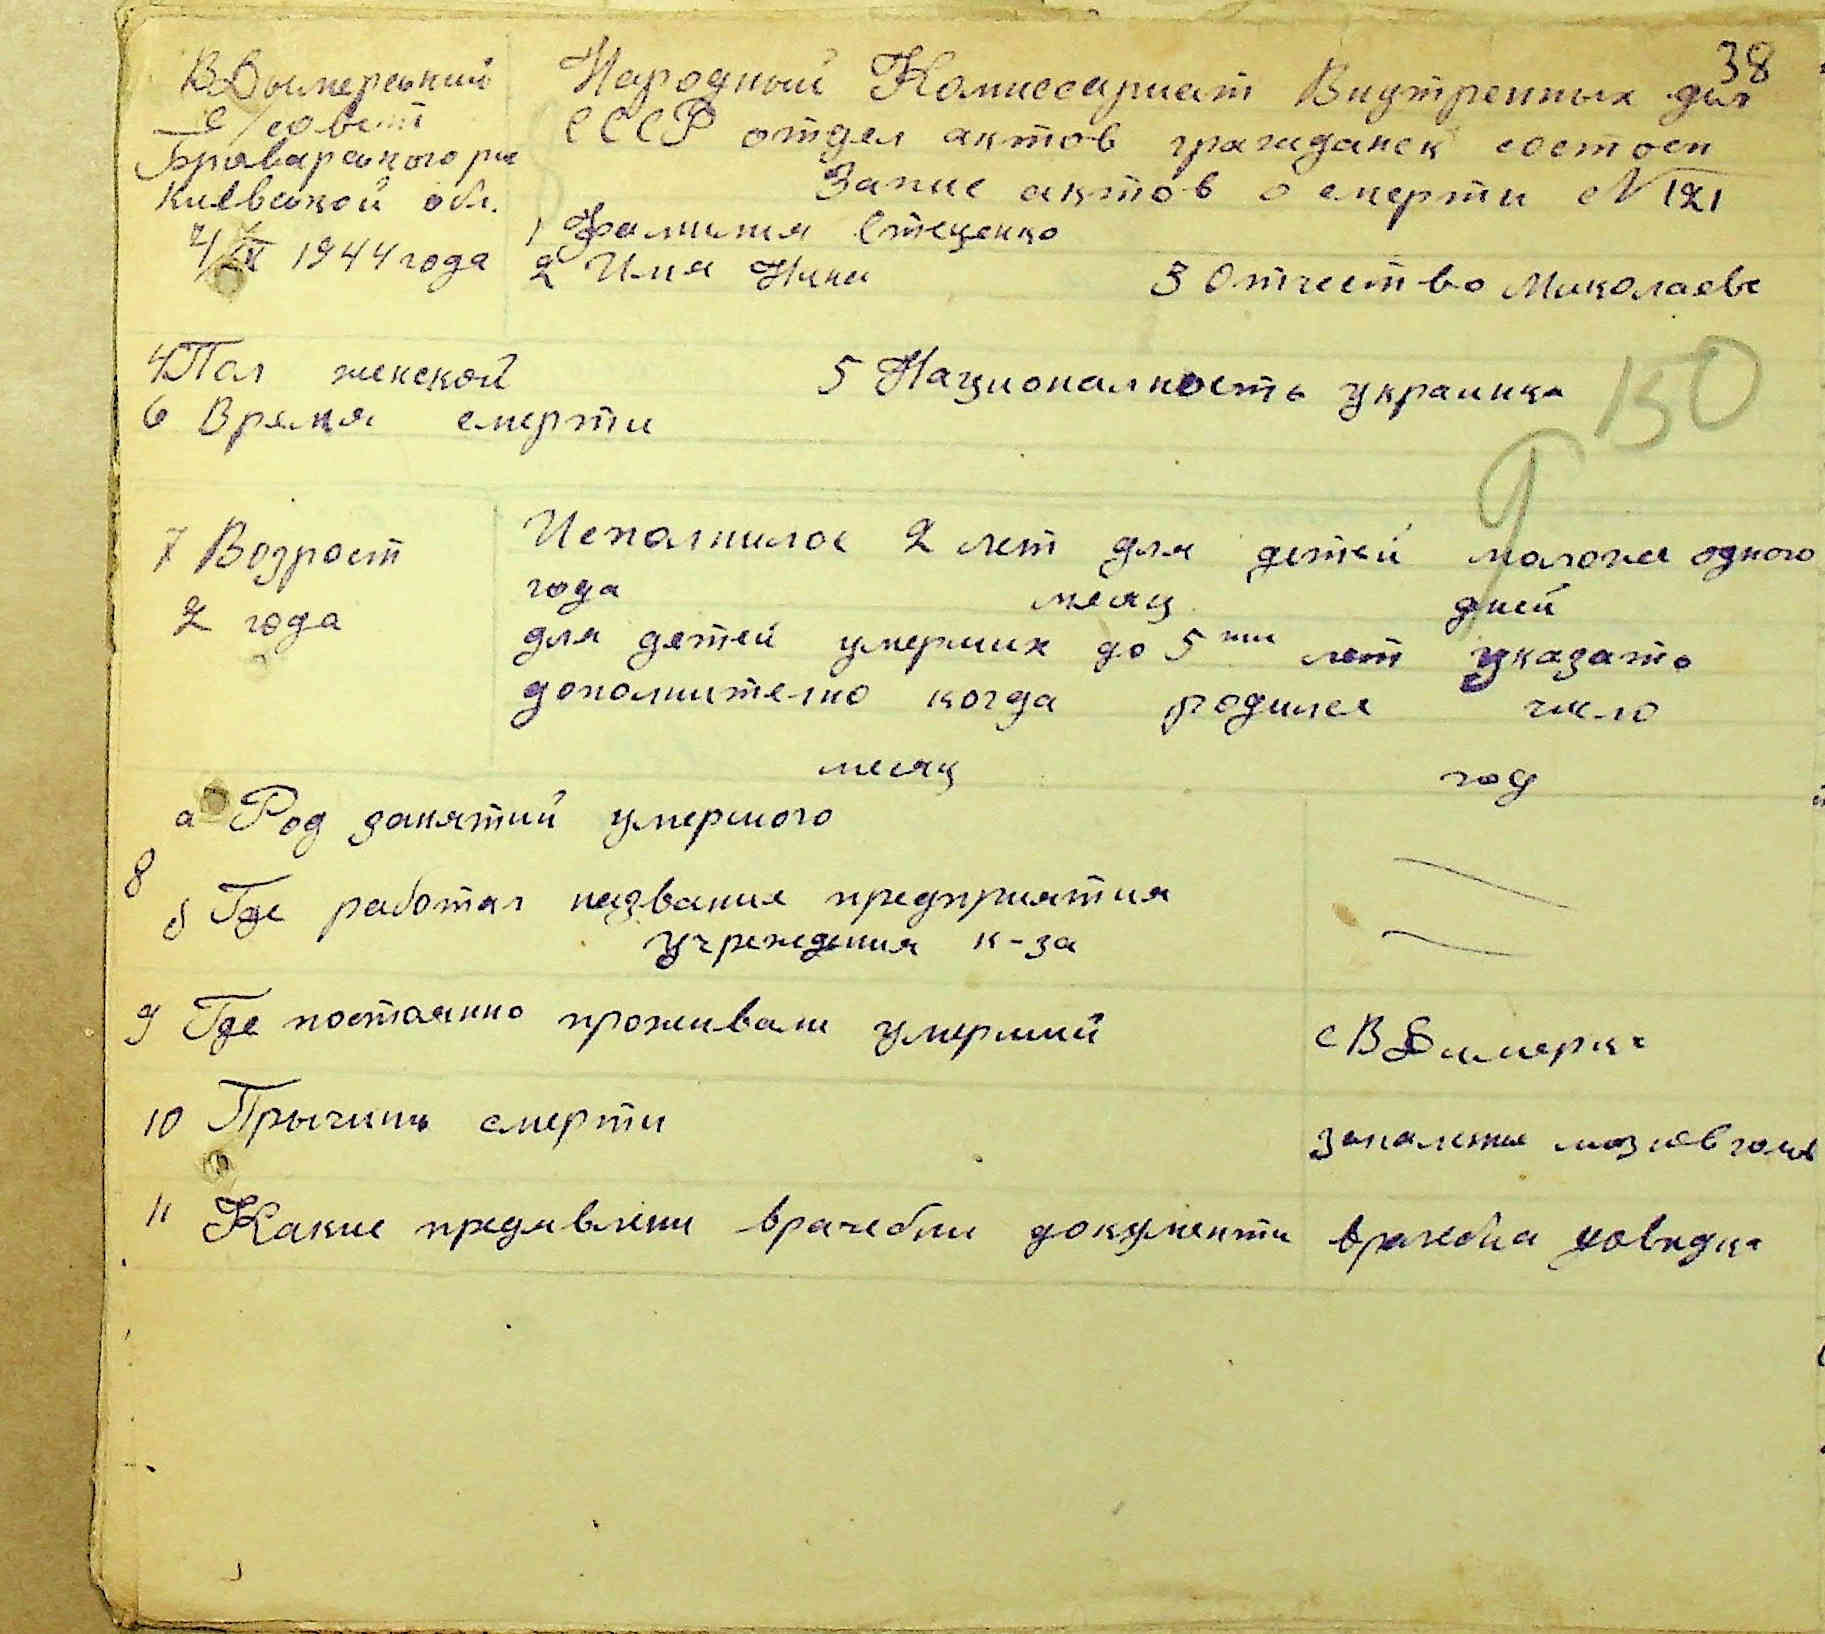 38
В Дымерський
с/совет
Броварського р-на
Киевськой обл.
1944 года
Народный Комиссариат Внутренных дел
СССР отдел актов гражданск состоян
Запис актов о смерти № 121
1 Фамилия Стеценко
2 Имя Нина 3 Отчество Миколаевс
4 Пол женской 5 Националность украинка
6 Время смерти
150
7 Возраст
2 года
Исполнилос 2 лет для детей моложе одного
года месяц дней
для детей умерших до 5ти лет указать
дополнително когда родился число
месяц год
а Род занятий умершого
8
б Где работал название предприятия
учреждения к-за
9 Где постоянно проживали умерший с В Димерка
10 Прычины смерти запаление мозков голов
11 Какие предявлени врачебни документи врачебна довидка